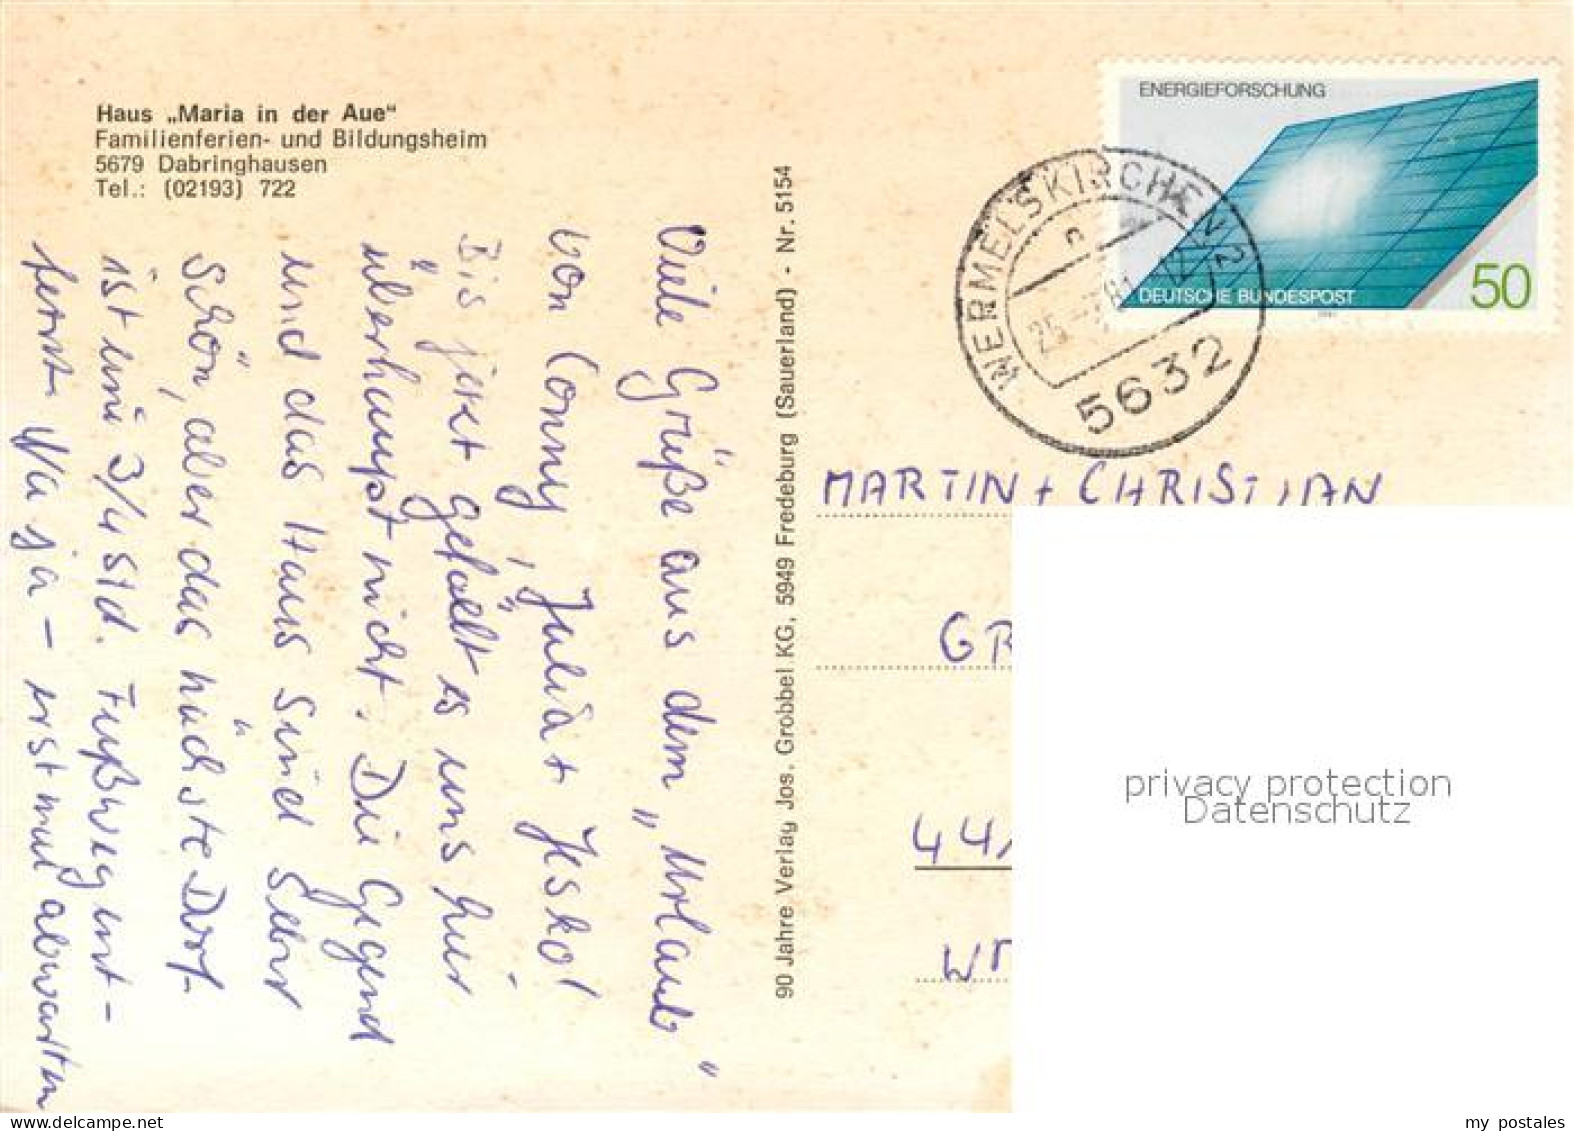 Haus „Maria in der Aue“
Familienferien- und Bildungsheim
5679 Dabringhausen
Tel.: (02193) 722
Viele Grüße aus dem „Urlaub“
von Conny, Julia + Jesko!
Bis jetzt gefällt es uns hier
überhaupt nicht. Die Gegend
und das Haus sind sehr
schön, aber das nächste Dorf
ist eine 3/4 Std. Fußweg ent-
fernt. Na ja - erst mal abwarten
90 Jahre Verlag Jos. Grobbel KG, 5949 Fredeburg (Sauerland) - Nr. 5154
ENERGIEFORSCHUNG
DEUTSCHE BUNDESPOST
50
WERMELSKIRCHEN 2
5632
MARTIN + CHRISTIAN
GR
44
privacy protection
Datenschutz
my postales
www.delcampe.net